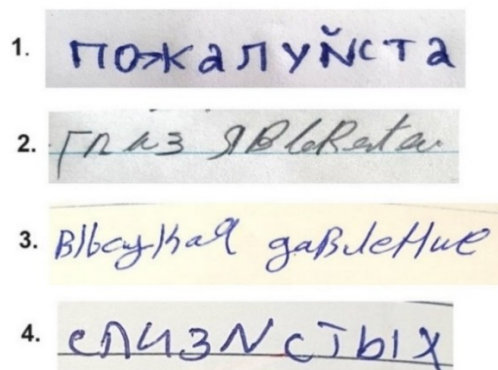 1. пожалуйста
2. глаз явлвята
3. высукая давление
4. слизистых